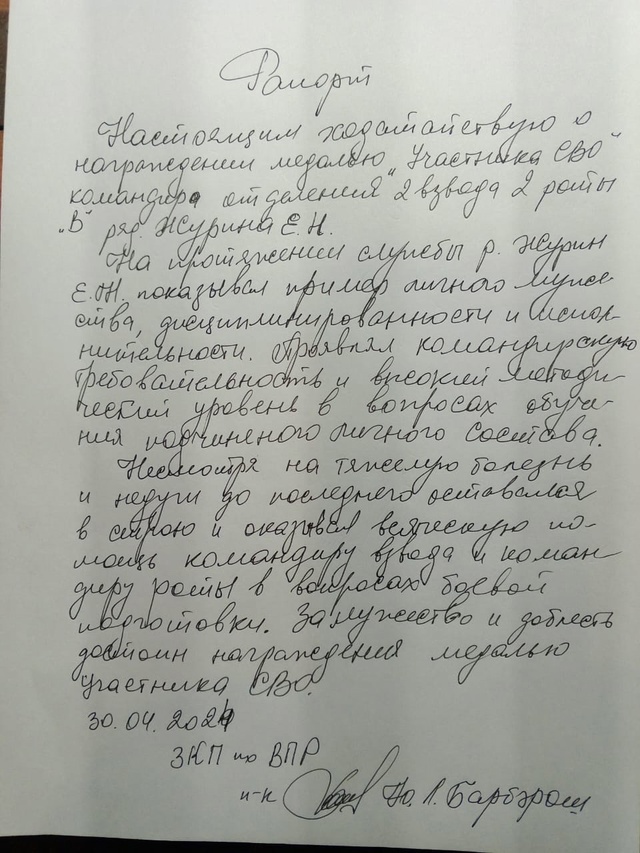 Рапорт
Настоящим ходатайствую о
награждении медалью "Участника СВО"
командира отделения 2 взвода 2 роты
"В" ряд. Журина Е.Н.
На протяжении службы р. Журин
Е.Н. показывал пример личного муже-
ства, дисциплинированности и испол-
нительности. Проявлял командирскую
требовательность и высокий методи-
ческий уровень в вопросах обуче-
ния подчиненого личного состава.
Несмотря на тяжелую болезнь
и недуги до последнего оставался
в строю и оказывал всяческую по-
мощь командиру взвода и коман-
диру роты в вопросах боевой
подготовки. За мужество и доблесть
достоин награждения медалью
участника СВО.
30.04.2024
ЗКП по ВПР
п-к Ю.Л. Барбэрош